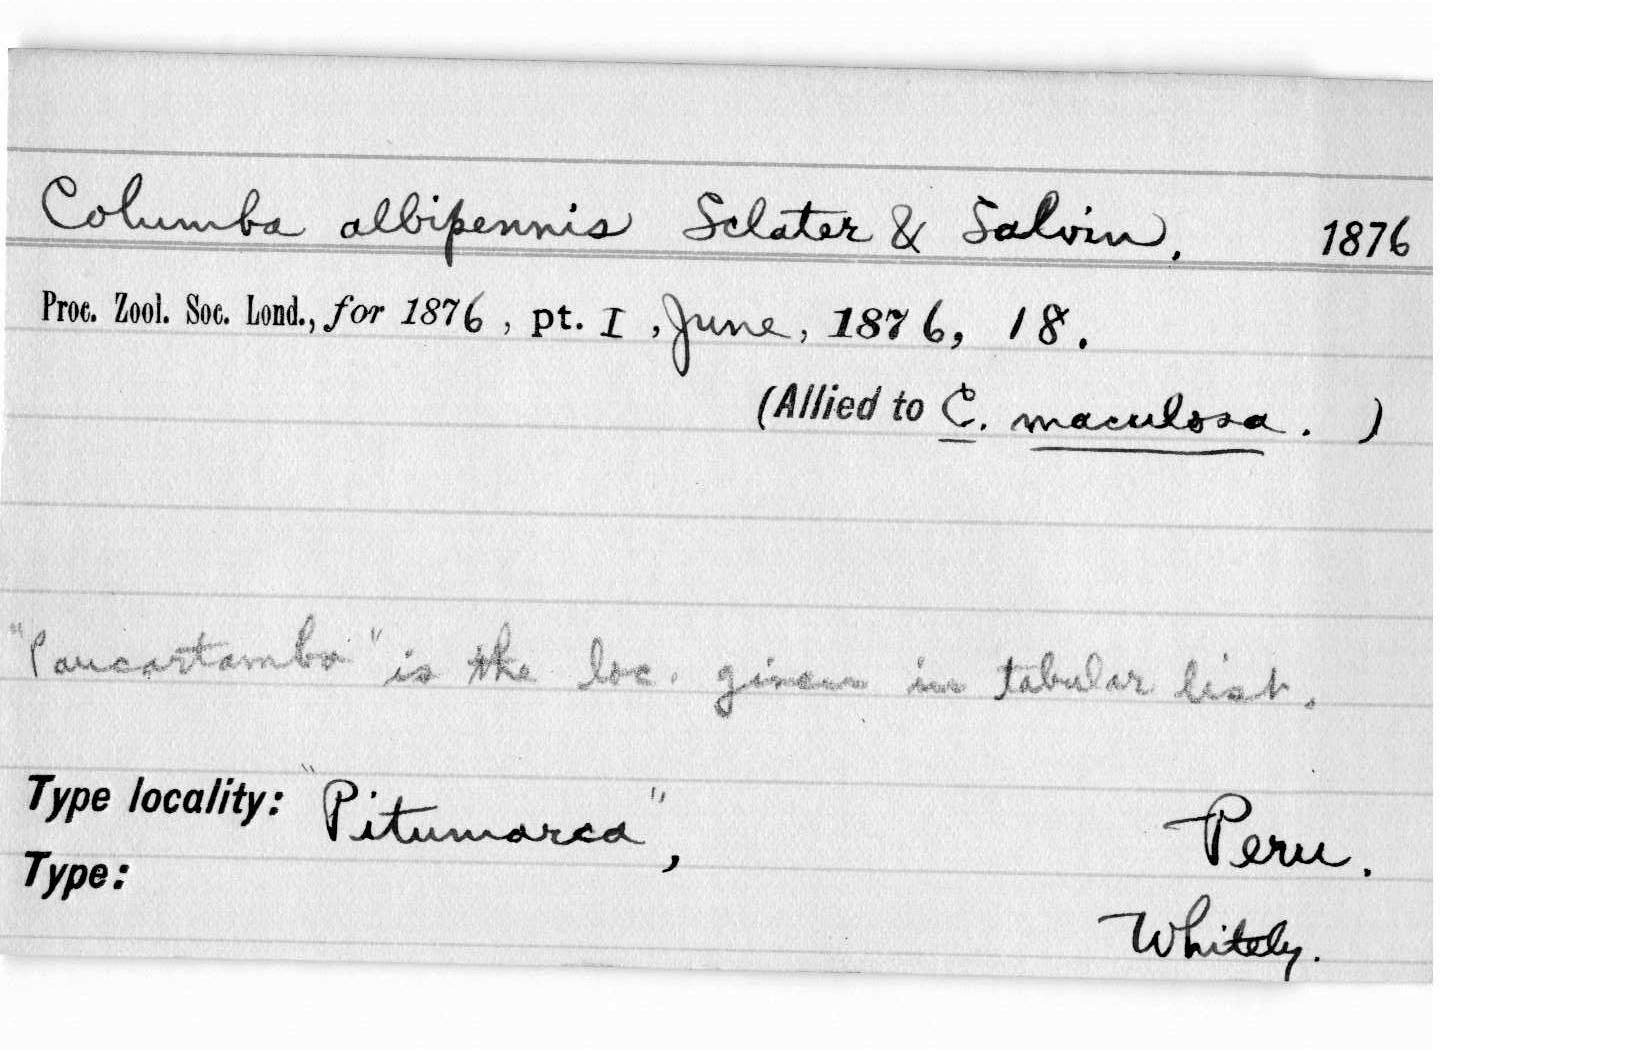 Columba albipennis Sclater & Salvin, 1876
Proc. Zool. Soc. Lond., for 1876, pt. I, June, 1876, 18.
(Allied to C. maculosa. )
"Paucartambo" is the loc. given in tabular list.
Type locality: "Pitumarca", Peru.
Type:
Whitely.